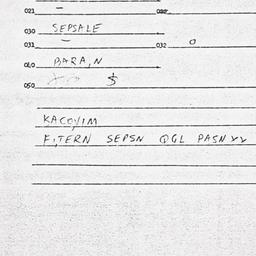 021 –
030 SEPSALE
031 – 032 0
040 BARA,N
050 $
KACOYIM
F,TERN SEPSN QGL PASN